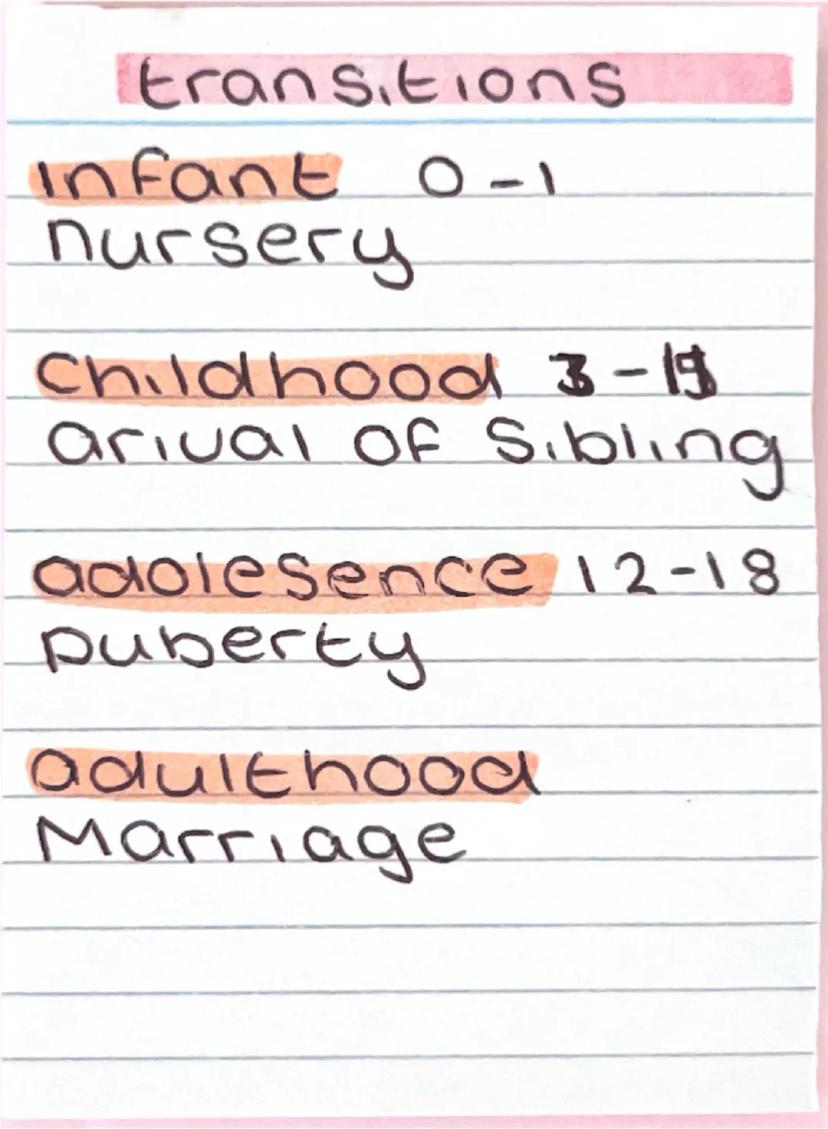 transitions
infant 0-1
nursery
Childhood 3-11
arival of Sibling
adolesence 12-18
puberty
adulthood
Marriage